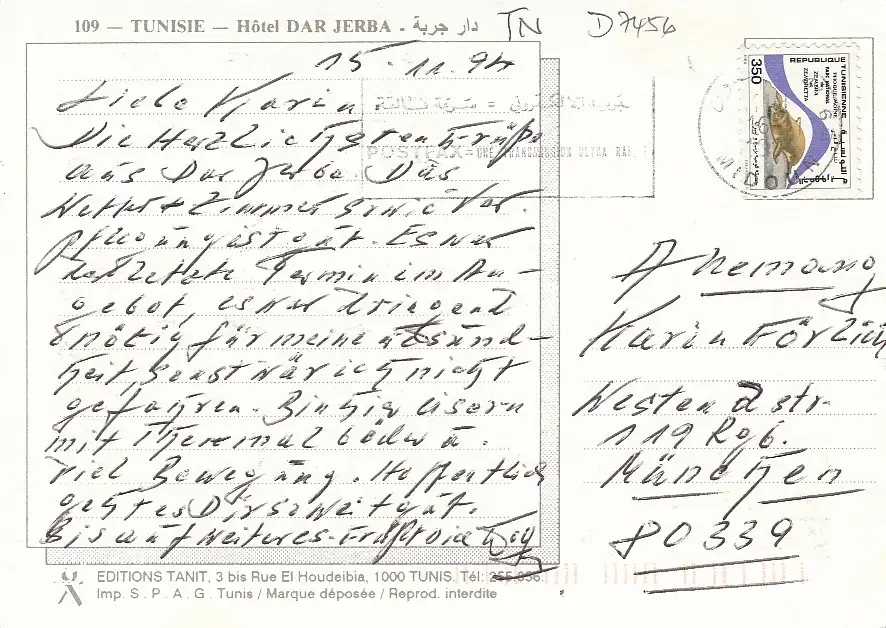 109 — TUNISIE — Hôtel DAR JERBA - دار جربة
TN D7456
15.11.94
Liebe Karin
Die Herzlichsten Grüße
aus Dar Jerba Das
Wetter & Zimmer sowie Ver-
pflegung ist gut. Es war
der letzte Termin im An-
gebot, es war dringend
nötig für meine Gesund-
heit, Sonst wär ich nicht
gefahren. Bin hier
mit Thermalbäder u.
viel Bewegung. Hoffentlich
geht es Dir soweit gut.
Bis auf weiteres - Grüßt Dich
REPUBLIQUE TUNISIENNE
350
POSTFAX = UNE TRANSMISSION ULTRA RAP
MIDOUN
Alemania
Karin Görlich
Westendstr.
119 Rgb.
München
80339
EDITIONS TANIT, 3 bis Rue El Houdeibia, 1000 TUNIS. Tél:
Imp. S . P . A . G . Tunis / Marque déposée / Reprod. interdite